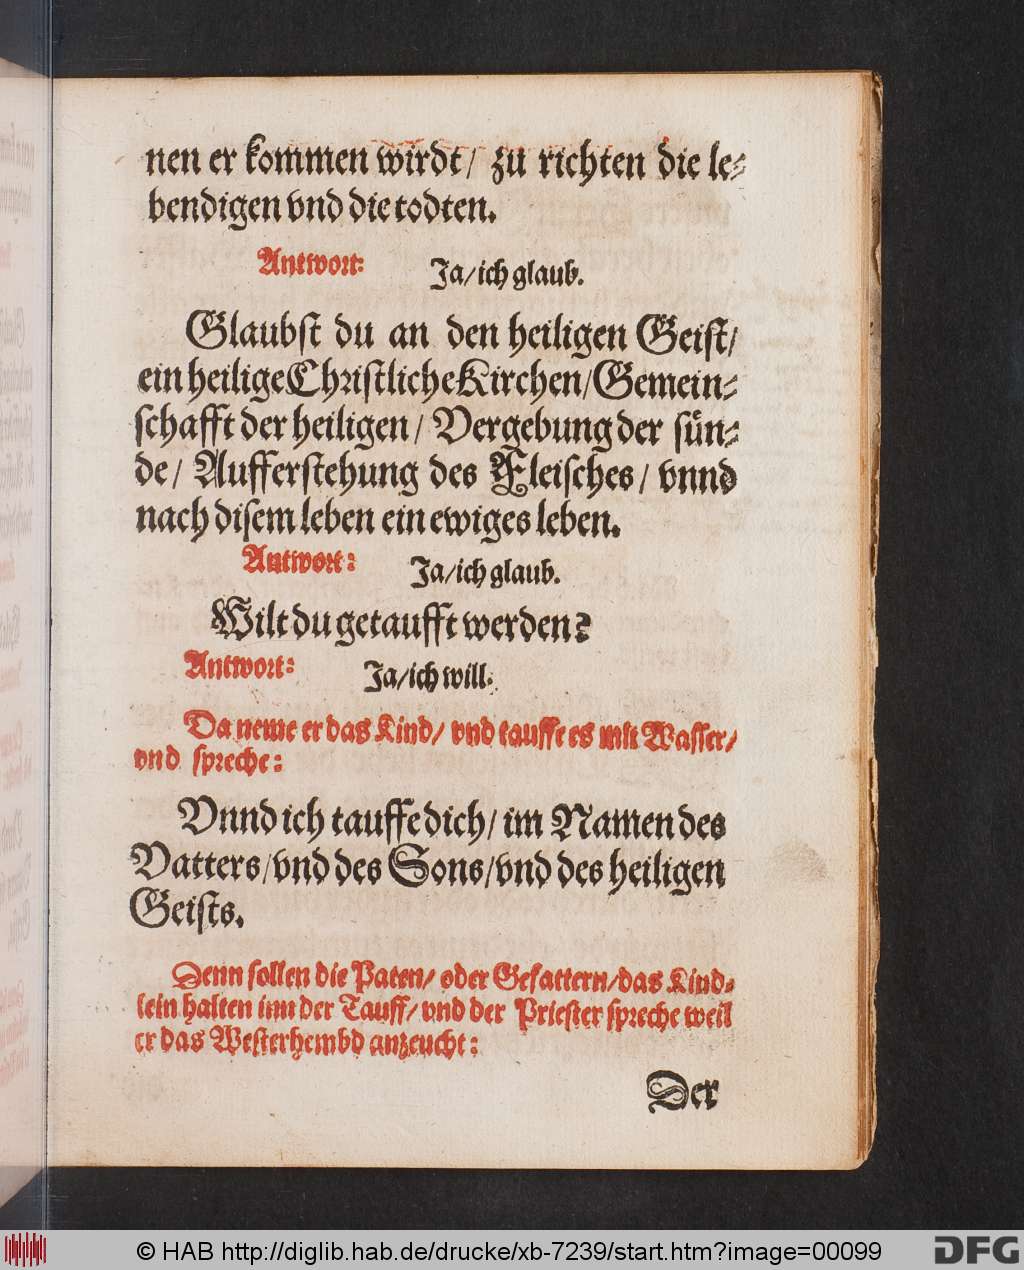 nen er kommen wirdt/ zu richten die le-
bendigen vnd die todten.
Antwort: Ja/ich glaub.
Glaubst du an den heiligen Geist/
ein heilige Christliche Kirchen/Gemein-
schafft der heiligen/ Vergebung der sün-
de/ Aufferstehung des Fleisches/ vnnd
nach disem leben ein ewiges leben.
Antwort: Ja/ich glaub.
Wilt du getaufft werden?
Antwort: Ja/ich will.
Da neme er das Kind/ vnd tauffe es mit Wasser/
vnd spreche:
Vnnd ich tauffe dich/ im Namen des
Vatters/vnd des Sons/vnd des heiligen
Geists.
Denn sollen die Paten/ oder Gefattern/das Kind-
lein halten inn der Tauff/ vnd der Priester spreche weil
er das Westerhembd anzeucht:
Der
© HAB http://diglib.hab.de/drucke/xb-7239/start.htm?image=00099
DFG